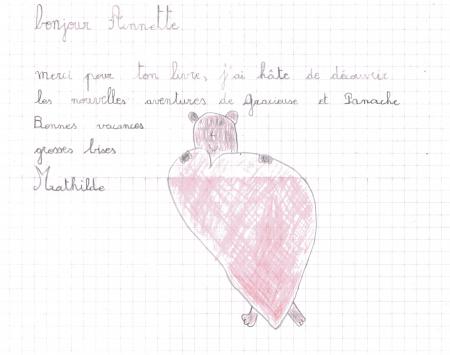 bonjour Annette
merci pour ton livre, j'ai hâte de découvrir
les nouvelles aventures de Gracieuse et Panache
Bonnes vacances
grosses bises
Mathilde